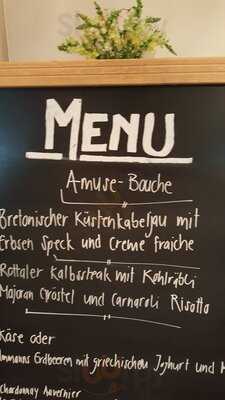 MENU
Amuse-Bouche
Bretonischer Küstenkabeljau mit
Erbsen Speck und Creme fraiche
Rottaler Kalbsteak mit Kohlrabi
Majoran Gröstel und Carnaroli Risotto
Käse oder
Ammanns Erdbeeren mit griechischem Joghurt und
Chardonnay Auvernier